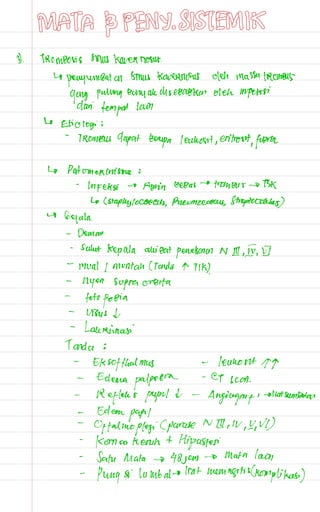 MATA & PENY. SISTEMIK
3. Trombosis sinus kavernosus
↳ penyumbatan sinus kavernosus oleh massa trombus
yang paling banyak disebabkan oleh infeksi
dari tempat lain
↳ Etiologi :
- Trombus dapat berupa leukosit, eritrosit, fibrin
↳ Patomekanisme :
- Infeksi → fibrin → trombus → TSK
↳ (Staphylococcus, Pneumococcus, Streptococcus)
↳ Gejala
- Demam
- Sakit kepala akibat penekanan N III, IV, VI
- mual / muntah (Tanda ↑ TIK)
- Nyeri supra orbita
- fotofobia
- visus ↓
- Lakrimasi
Tanda :
- Eksoftalmus - leukosit ↑↑
- Edema palpebra - CT scan.
- Refleks pupil ↓ - Angiografi →
- Edem papil
- Oftalmoplegi (parese N III, IV, V, VI)
- Kornea keruh + Hipestesi
- Satu mata → 48 jam → mata lain
- Pungsi lumbal → lihat meningitis (komplikasi)